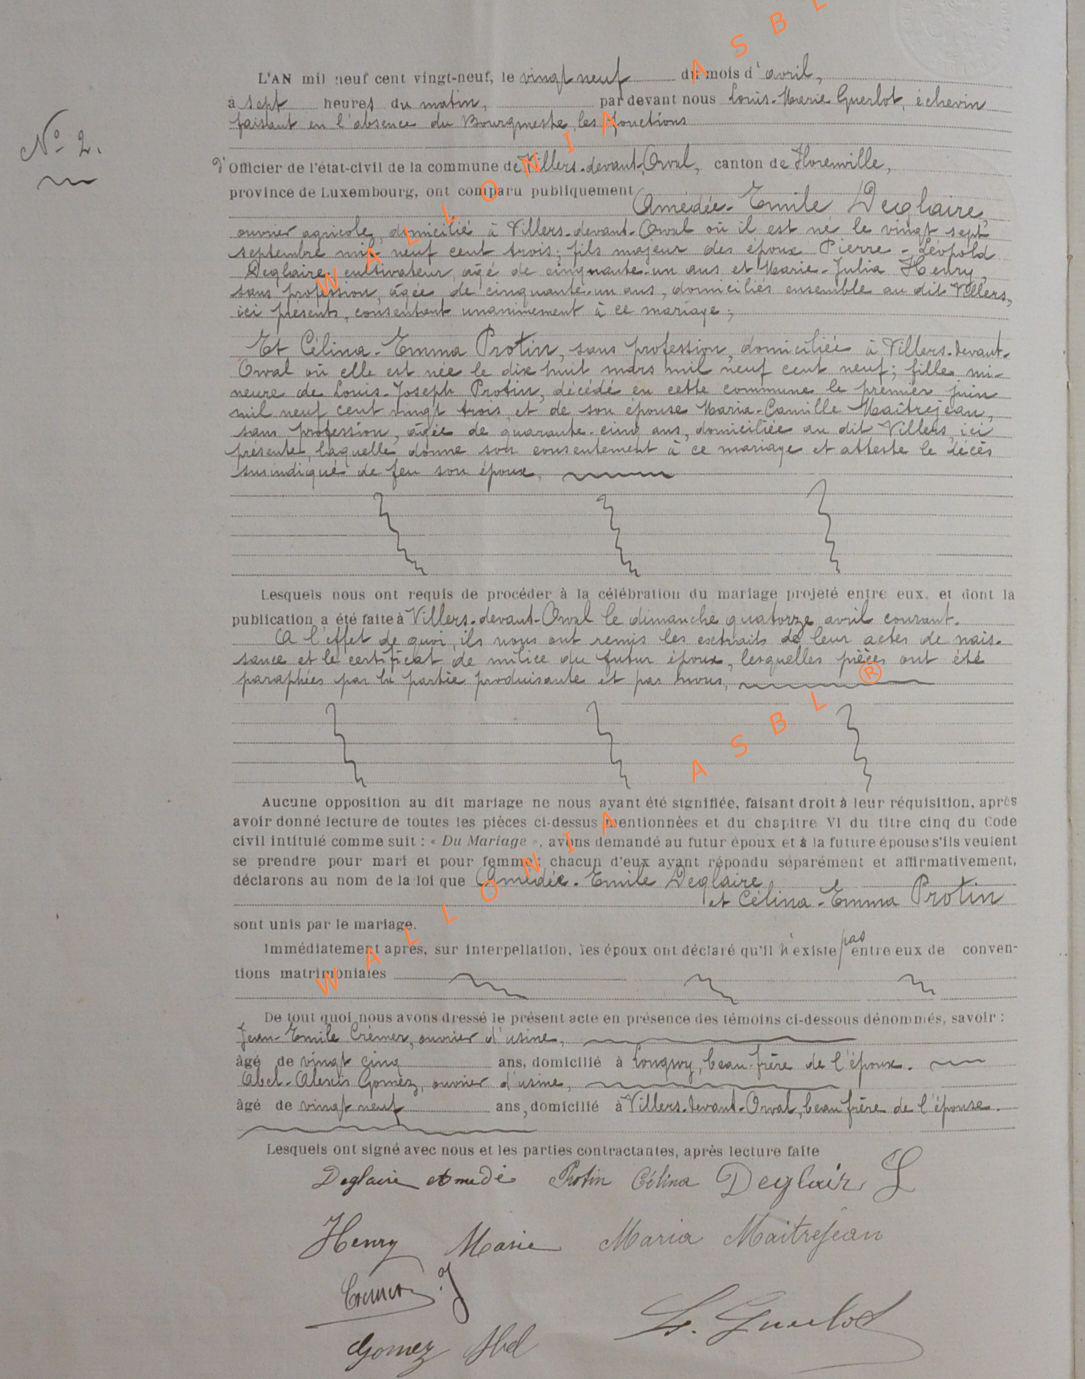 N° 2.
L'AN mil neuf cent vingt-neuf, le vingt neuf du mois d'avril,
à sept heures du matin, par devant nous Louis-Marie Guerlot, échevin
faisant en l'absence du Bourgmestre, les fonctions
d'Officier de l'état-civil de la commune de Villers-devant-Orval, canton de Florenville,
province de Luxembourg, ont comparu publiquement Amédée-Emile Deglaire,
ouvrier agricole, domicilié à Villers-devant-Orval où il est né le vingt sept
septembre mil neuf cent trois; fils majeur des époux Pierre-Léopold
Deglaire, cultivateur, âgé de cinquante-un ans et Marie-Julia Henry,
sans profession, âgée de cinquante-un ans, domiciliés ensemble au dit Villers,
ici présents, consentent unanimement à ce mariage;
Et Célina-Emma Protin, sans profession, domiciliée à Villers-devant-
Orval où elle est née le dix huit mars mil neuf cent neuf; fille mi-
neure de Louis-Joseph Protin, décédé en cette commune le premier juin
mil neuf cent vingt trois et de son épouse Maria-Camille Maîtrejean,
sans profession, âgée de quarante-cinq ans, domiciliée au dit Villers, ici
présente, laquelle donne son consentement à ce mariage et atteste le décès
susindiqué de feu son époux.
Lesquels nous ont requis de procéder à la célébration du mariage projeté entre eux, et dont la
publication a été faite à Villers-devant-Orval le dimanche quatorze avril courant.
A l'effet de quoi, ils nous ont remis les extraits de leur actes de nais-
sance et le certificat de milice du futur époux, lesquelles pièces ont été
paraphées par la partie produisante et par nous,
Aucune opposition au dit mariage ne nous ayant été signifiée, faisant droit à leur réquisition, après
avoir donné lecture de toutes les pièces ci-dessus mentionnées et du chapitre VI du titre cinq du Code
civil intitulé comme suit : « Du Mariage », avons demandé au futur époux et à la future épouse s'ils veulent
se prendre pour mari et pour femme; chacun d'eux ayant répondu séparément et affirmativement,
déclarons au nom de la loi que Amédée-Emile Deglaire
et Célina-Emma Protin
sont unis par le mariage.
Immédiatement après, sur interpellation, les époux ont déclaré qu'il n'existe pas entre eux de conven-
tions matrimoniales
De tout quoi nous avons dressé le présent acte en présence des témoins ci-dessous dénommés, savoir :
Jean-Emile Crémer, ouvrier d'usine,
âgé de vingt cinq ans, domicilié à Longwy, beau-frère de l'époux.
Abel-Alexis Gomez, ouvrier d'usine,
âgé de vingt neuf ans, domicilié à Villers-devant-Orval, beau frère de l'épouse.
Lesquels ont signé avec nous et les parties contractantes, après lecture faite
Deglaire Amedé Protin Célina Deglair L
Henry Marie Maria Maitrejean
Cremer J
Gomez Abel L. Guerlot
WALLONIA ASBL
WALLONIA ASBL ®